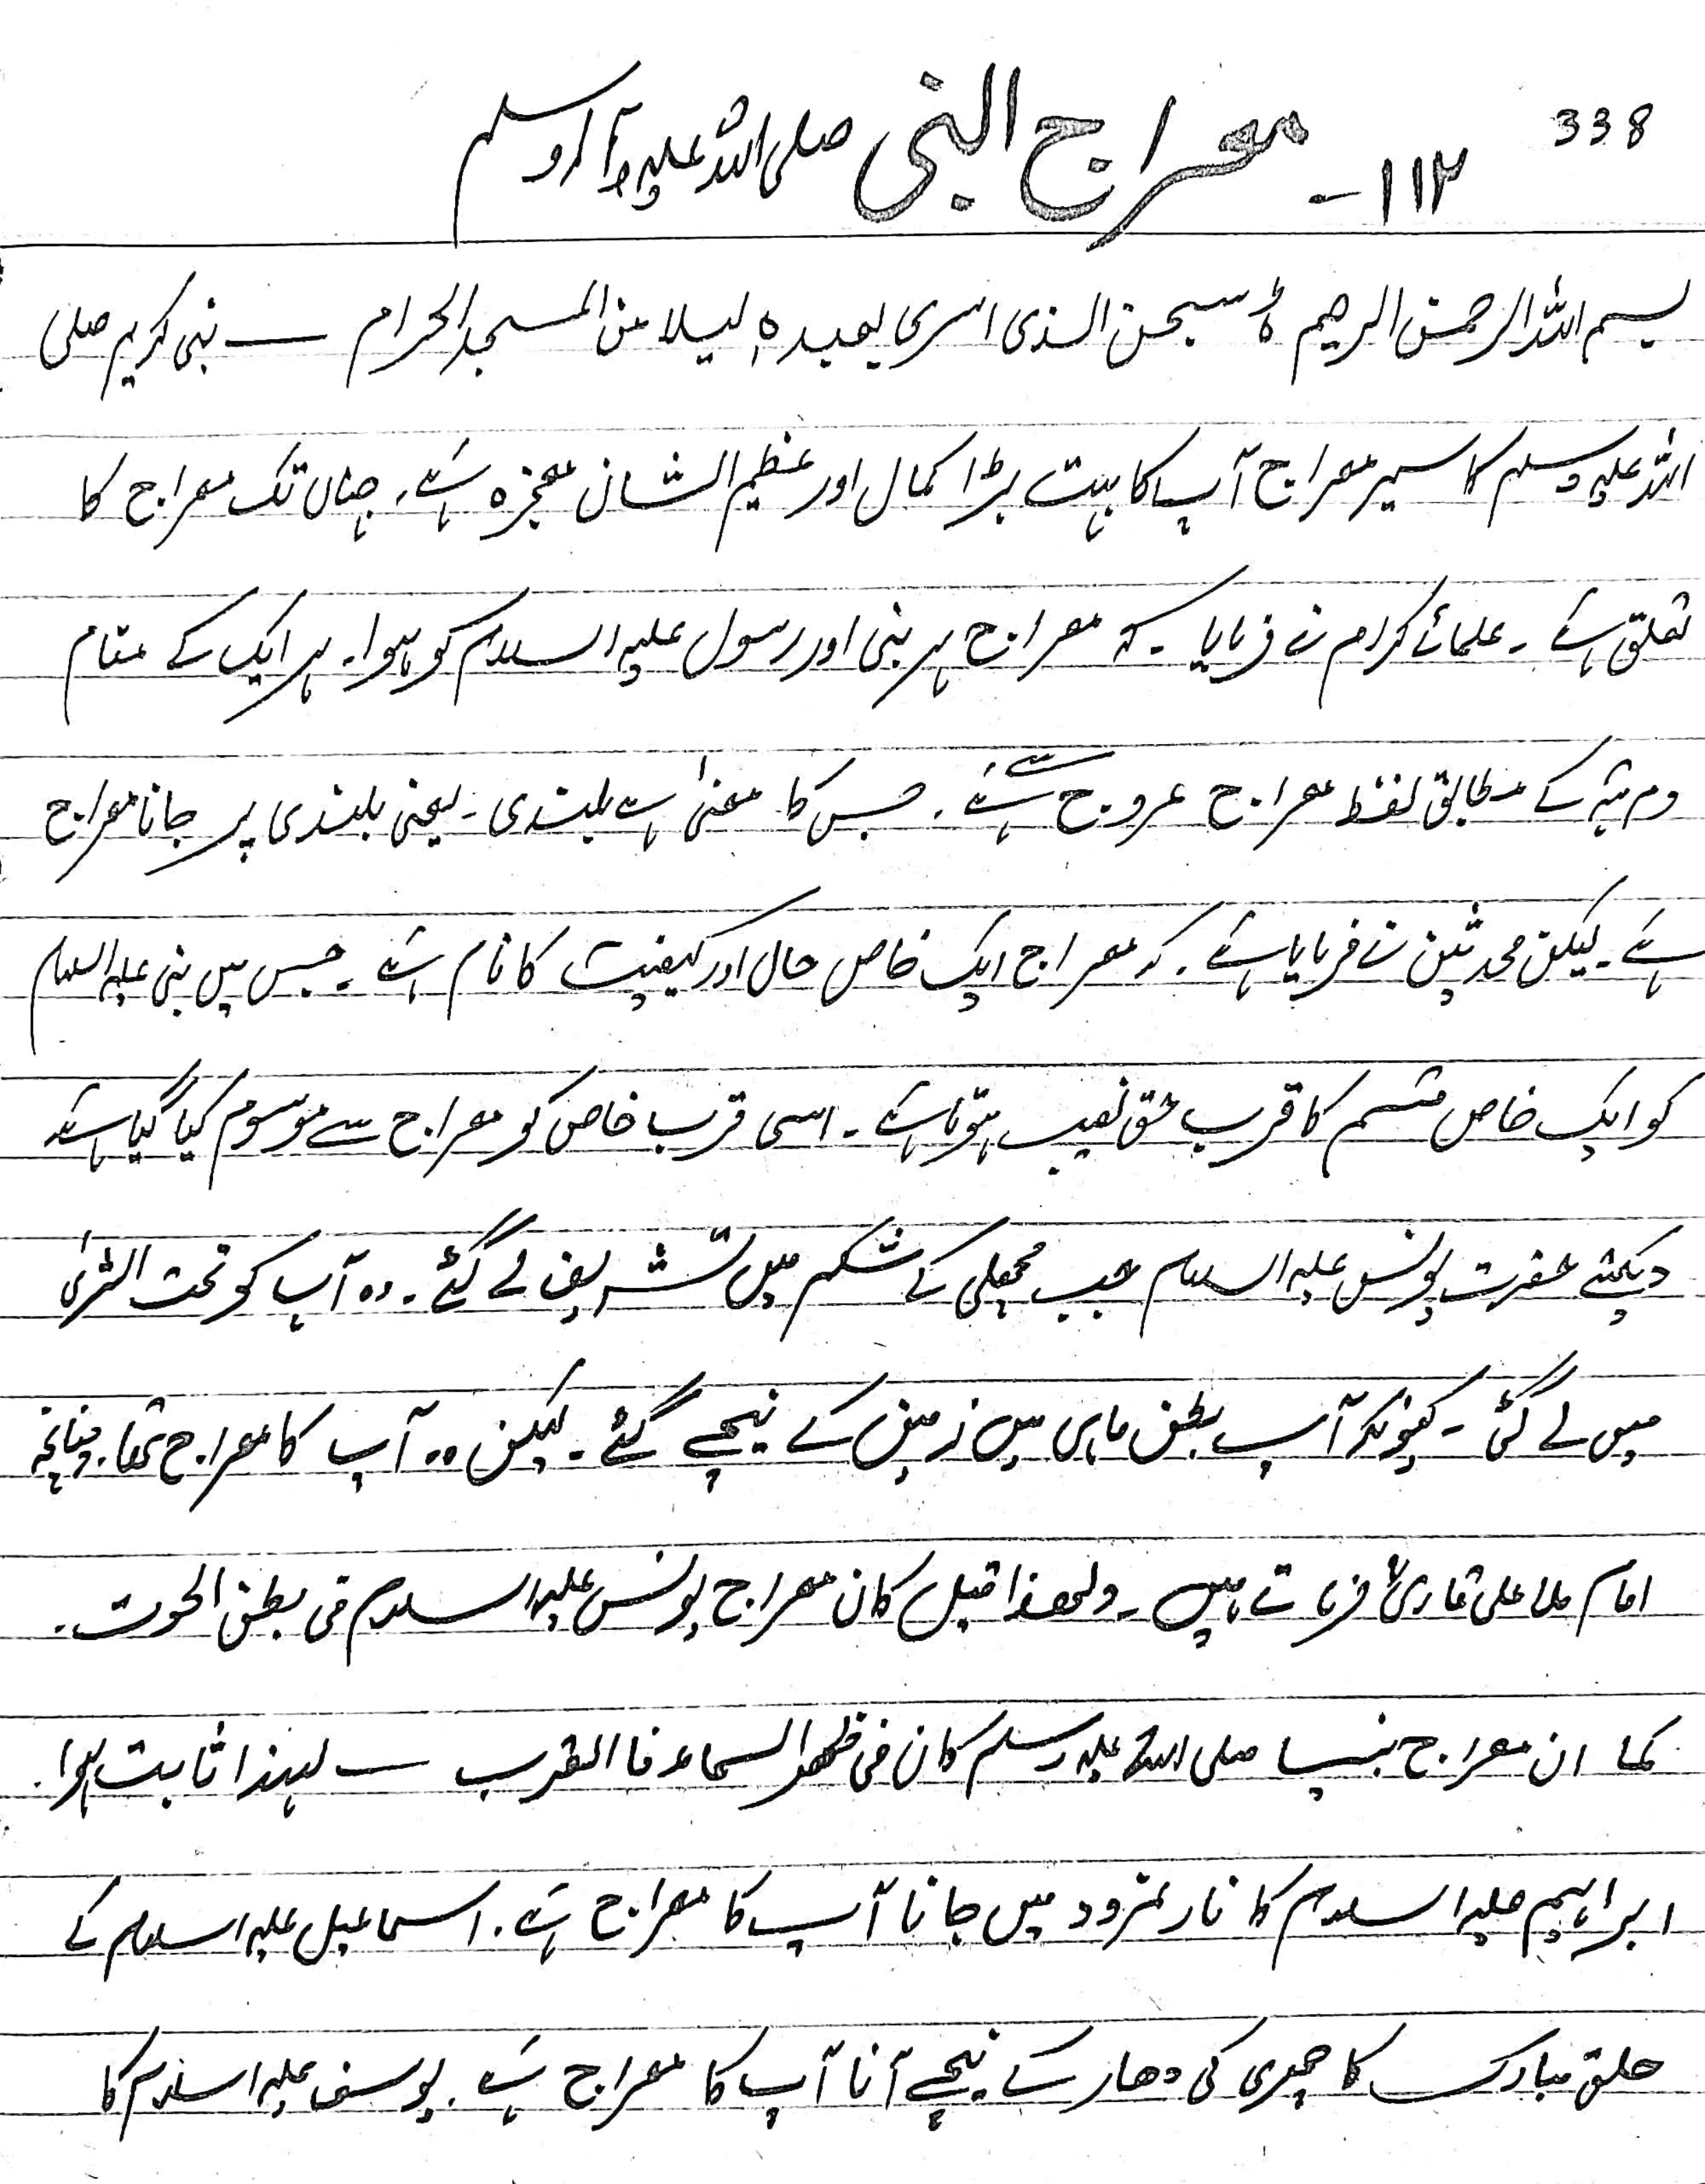 338
۱۱۲- معراج النبی صلی اللہ علیہ وآلہ وسلم
بسم اللہ الرحمن الرحیم ط سبحن الذی اسری بعبدہ لیلا من المسجد الحرام — نبی کریم صلی
اللہ علیہ وسلم کا سیر معراج آپ کا بہت بڑا کمال اور عظیم الشان معجزہ ہے، جہاں تک معراج کا
تعلق ہے۔ علمائے کرام نے فرمایا۔ کہ معراج ہر نبی اور رسول علیہ السلام کو ہوا۔ ہر ایک کے مقام
و مرتبہ کے مطابق لفظ معراج عروج سے ہے۔ جس کا معنیٰ ہے بلندی۔ یعنی بلندی پر جانا معراج
ہے۔ لیکن محدثین نے فرمایا ہے۔ کہ معراج ایک خاص حال اور کیفیت کا نام ہے۔ جس میں نبی علیہ السلام
کو ایک خاص قسم کا قرب حق نصیب ہوتا ہے۔ اسی قرب خاص کو معراج سے موسوم کیا گیا ہے
دیکھئے حضرت یونس علیہ السلام جب مچھلی کے شکم میں تشریف لے گئے۔ وہ آپ کو تحت الثریٰ
میں لے گئی۔ کیونکہ آپ بطن ماہی میں زمین کے نیچے گئے۔ لیکن وہ آپ کا معراج تھا۔ چنانچہ
امام ملا علی قاریؒ فرماتے ہیں۔ ولھذا قیل کان معراج یونس علیہ السلام فی بطن الحوت۔
کما ان معراج نبینا صلی اللہ علیہ وسلم کان فی ظھر السماء فا القرب — لہٰذا ثابت ہوا۔
ابراہیم علیہ السلام کا نار نمرود میں جانا آپ کا معراج ہے۔ اسماعیل علیہ السلام کے
حلق مبارک کا چھری کی دھار کے نیچے آنا آپ کا معراج ہے۔ یوسف علیہ السلام کا